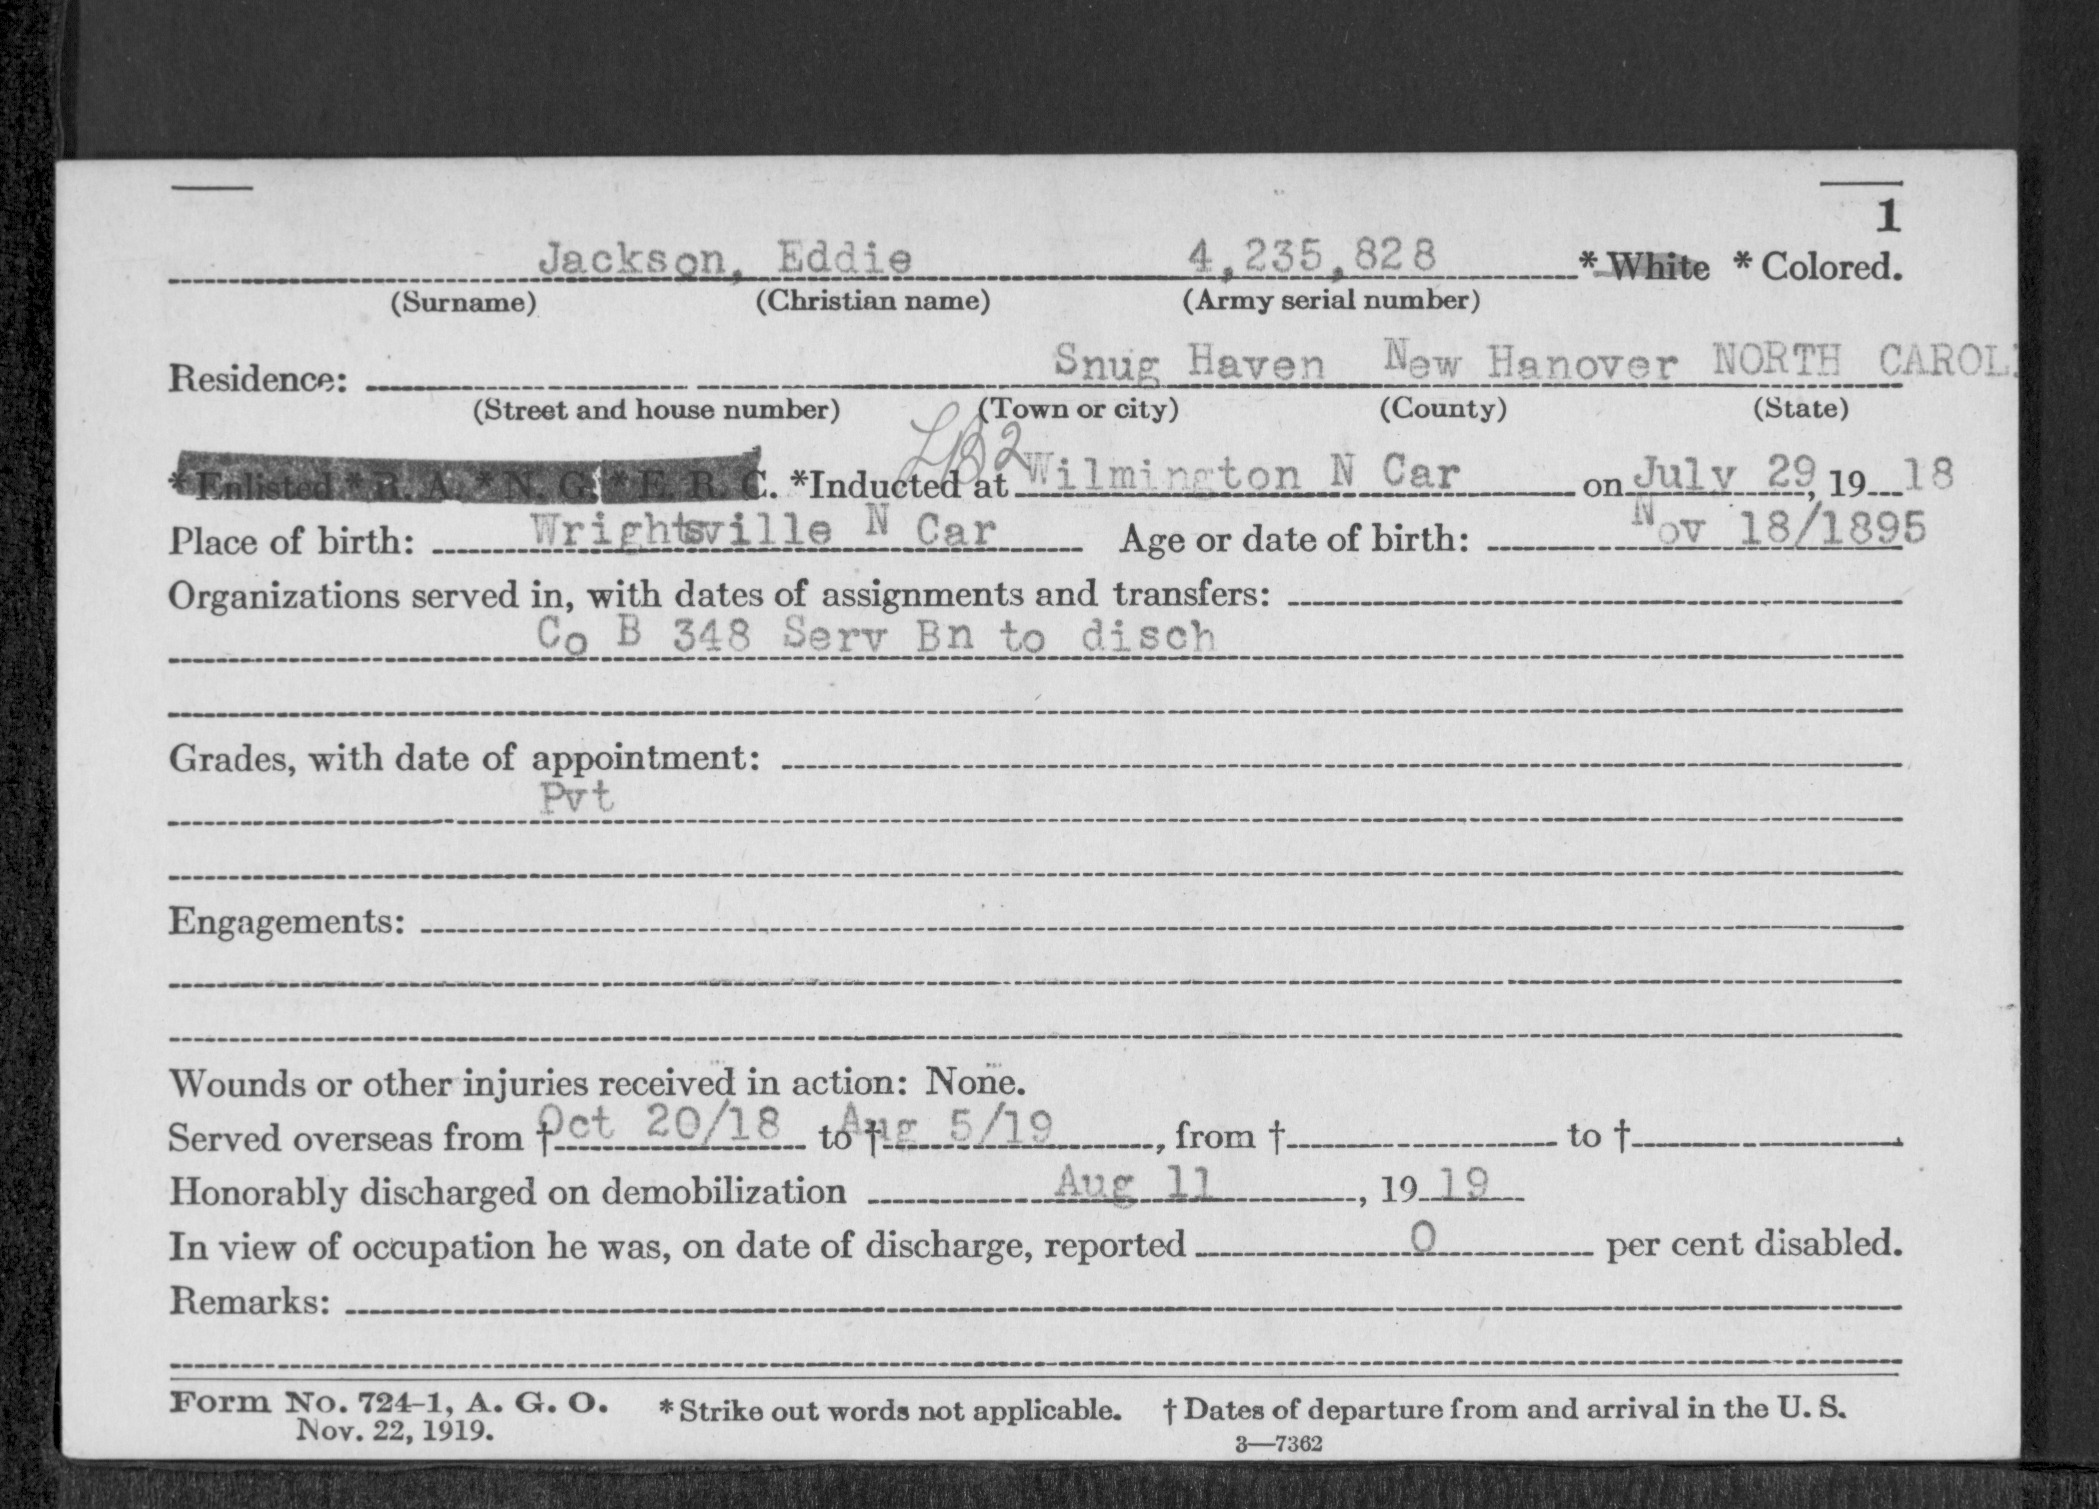 1
Jackson, Eddie 4,235,828 * White * Colored.
(Surname) (Christian name) (Army serial number)
Residence: Snug Haven New Hanover NORTH CAROL
(Street and house number) (Town or city) (County) (State)
LB2
* Enlisted * R. A. * N. G. * E. R. C. *Inducted at Wilmington N Car on July 29, 19 18
Place of birth: Wrightsville N Car Age or date of birth: Nov 18/1895
Organizations served in, with dates of assignments and transfers:
Co B 348 Serv Bn to disch
Grades, with date of appointment:
Pvt
Engagements:
Wounds or other injuries received in action: None.
Served overseas from † Oct 20/18 to † Aug 5/19, from † to †
Honorably discharged on demobilization Aug 11, 19 19
In view of occupation he was, on date of discharge, reported 0 per cent disabled.
Remarks:
Form No. 724-1, A. G. O. * Strike out words not applicable. † Dates of departure from and arrival in the U. S.
Nov. 22, 1919. 3—7362